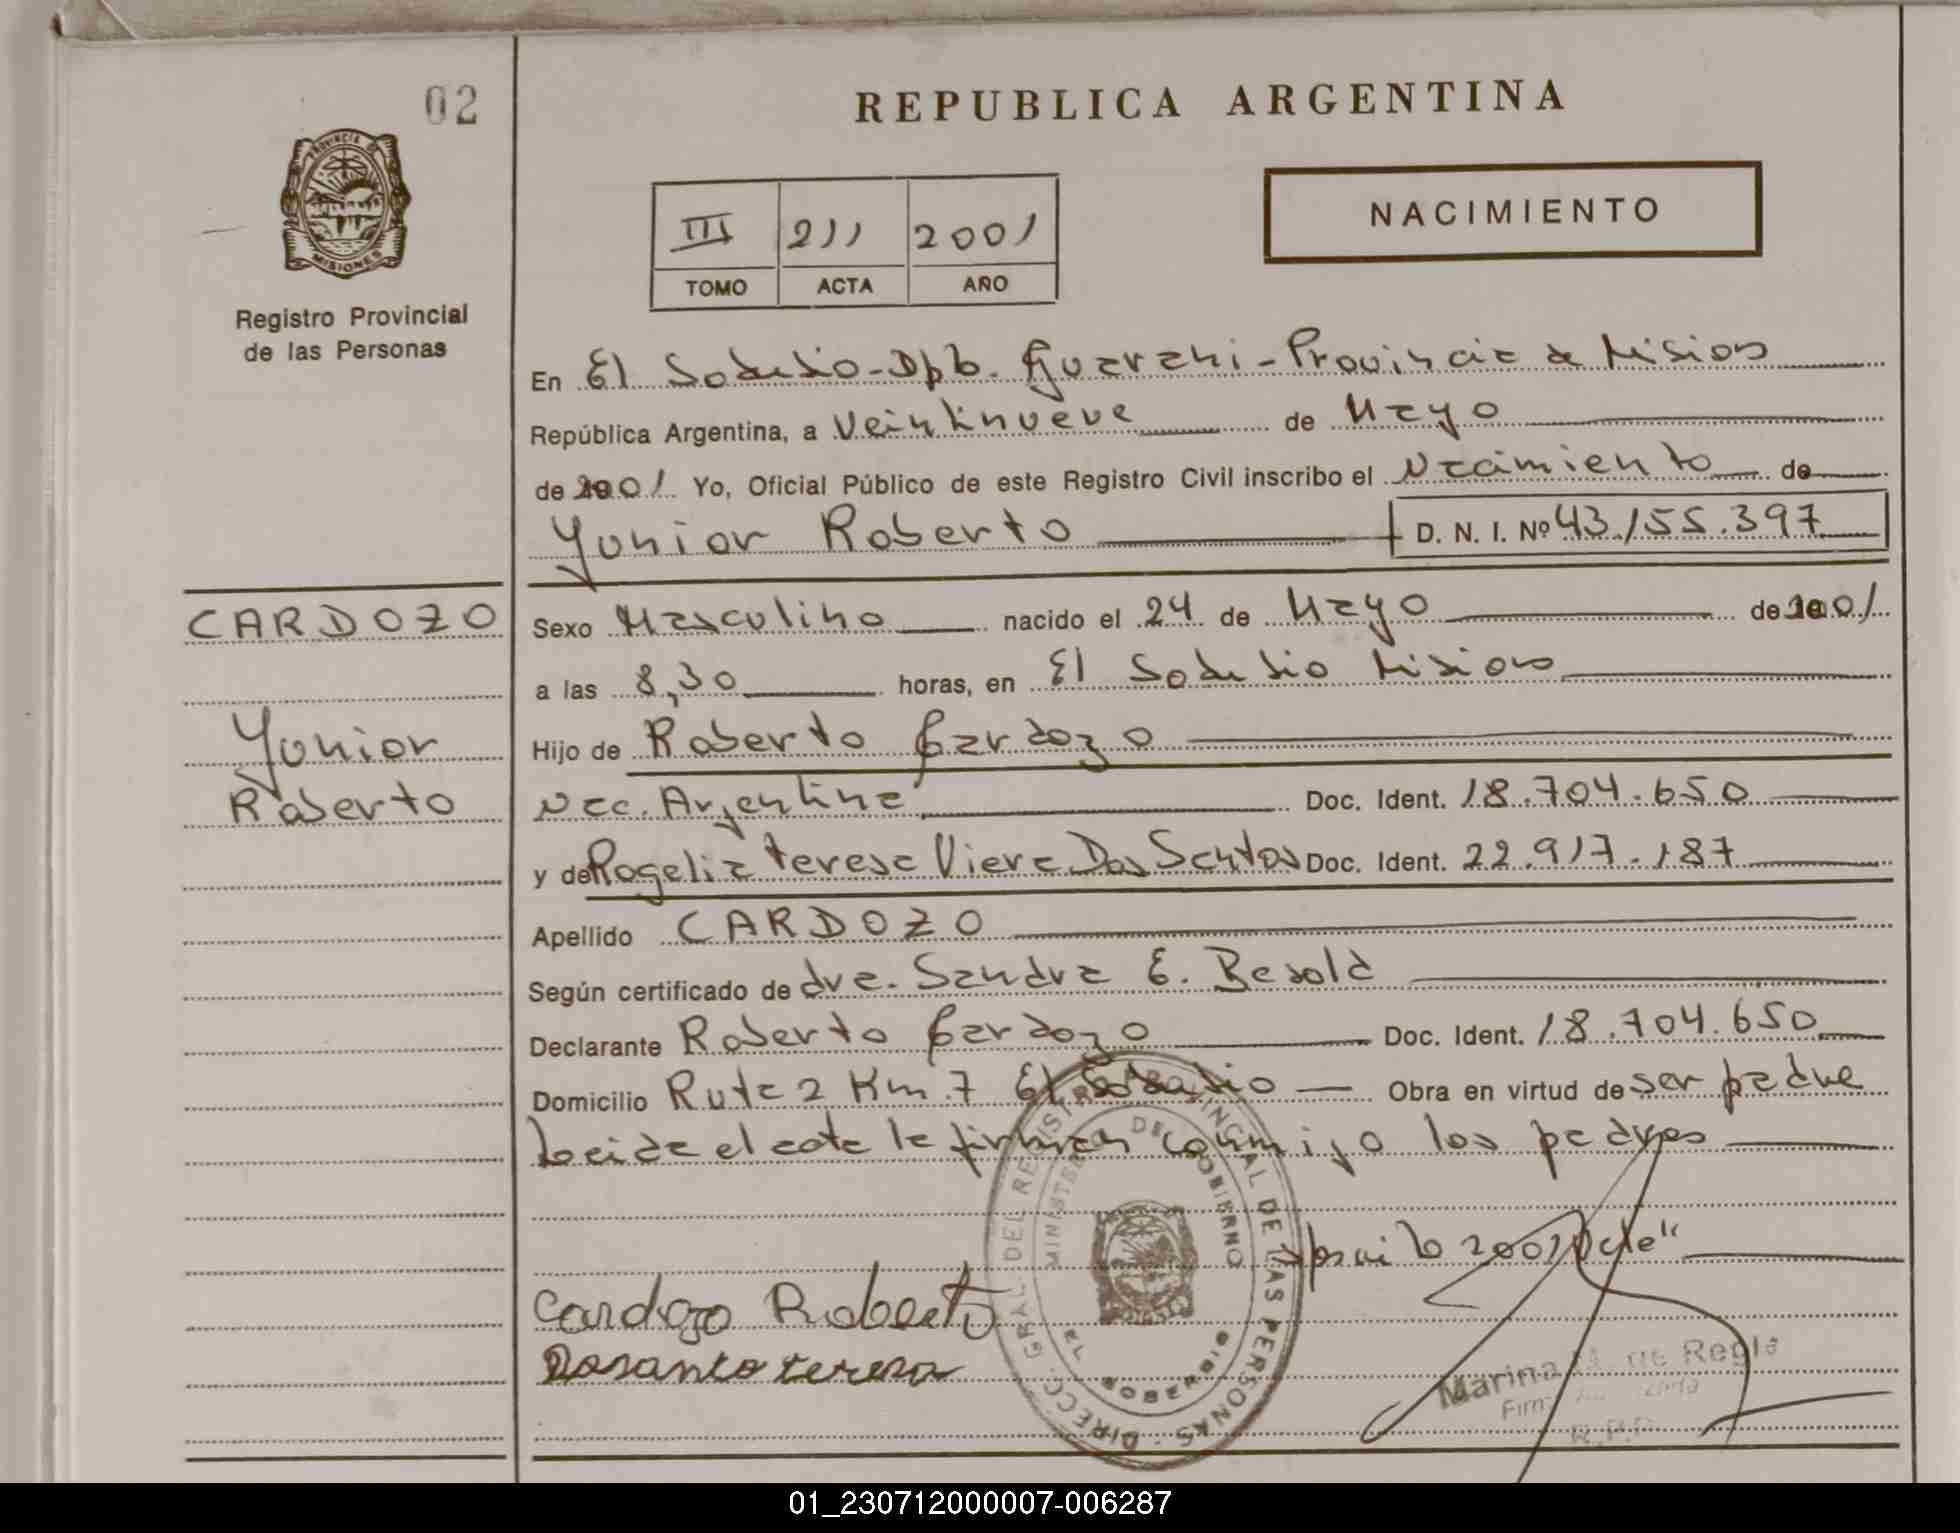 02
PROVINCIA DE
MISIONES
Registro Provincial
de las Personas
REPUBLICA ARGENTINA
III 211 2001
TOMO ACTA AÑO
NACIMIENTO
En El Soberbio - Dpto. Guarani - Provincia de Misiones
República Argentina, a Veintinueve de Mayo
de 2001 Yo, Oficial Público de este Registro Civil inscribo el Nacimiento de
Yonior Roberto D. N. I. Nº 43.155.397
CARDOZO
Yonior
Roberto
Sexo Masculino nacido el 24 de Mayo de 2001
a las 8,30 horas, en El Soberbio Misiones
Hijo de Roberto Cardozo
Nac. Argentina Doc. Ident. 18.704.650
y de Rogelia teresa Viera Dos Santos Doc. Ident. 22.917.187
Apellido CARDOZO
Según certificado de dra. Sandra E. Besold
Declarante Roberto Cardozo Doc. Ident. 18.704.650
Domicilio Ruta 2 Km. 7 El Soberbio Obra en virtud de ser padre
Leida el acta la firman conmigo los padres
2001 Vale"
Cardozo Roberto
Dosanto teresa
DIRECC. GRAL. DEL REGISTRO PROVINCIAL DE LAS PERSONAS
MINISTERIO DEL GOBIERNO
EL SOBERBIO
Marina de Regla
R.P.P.
01_230712000007-006287